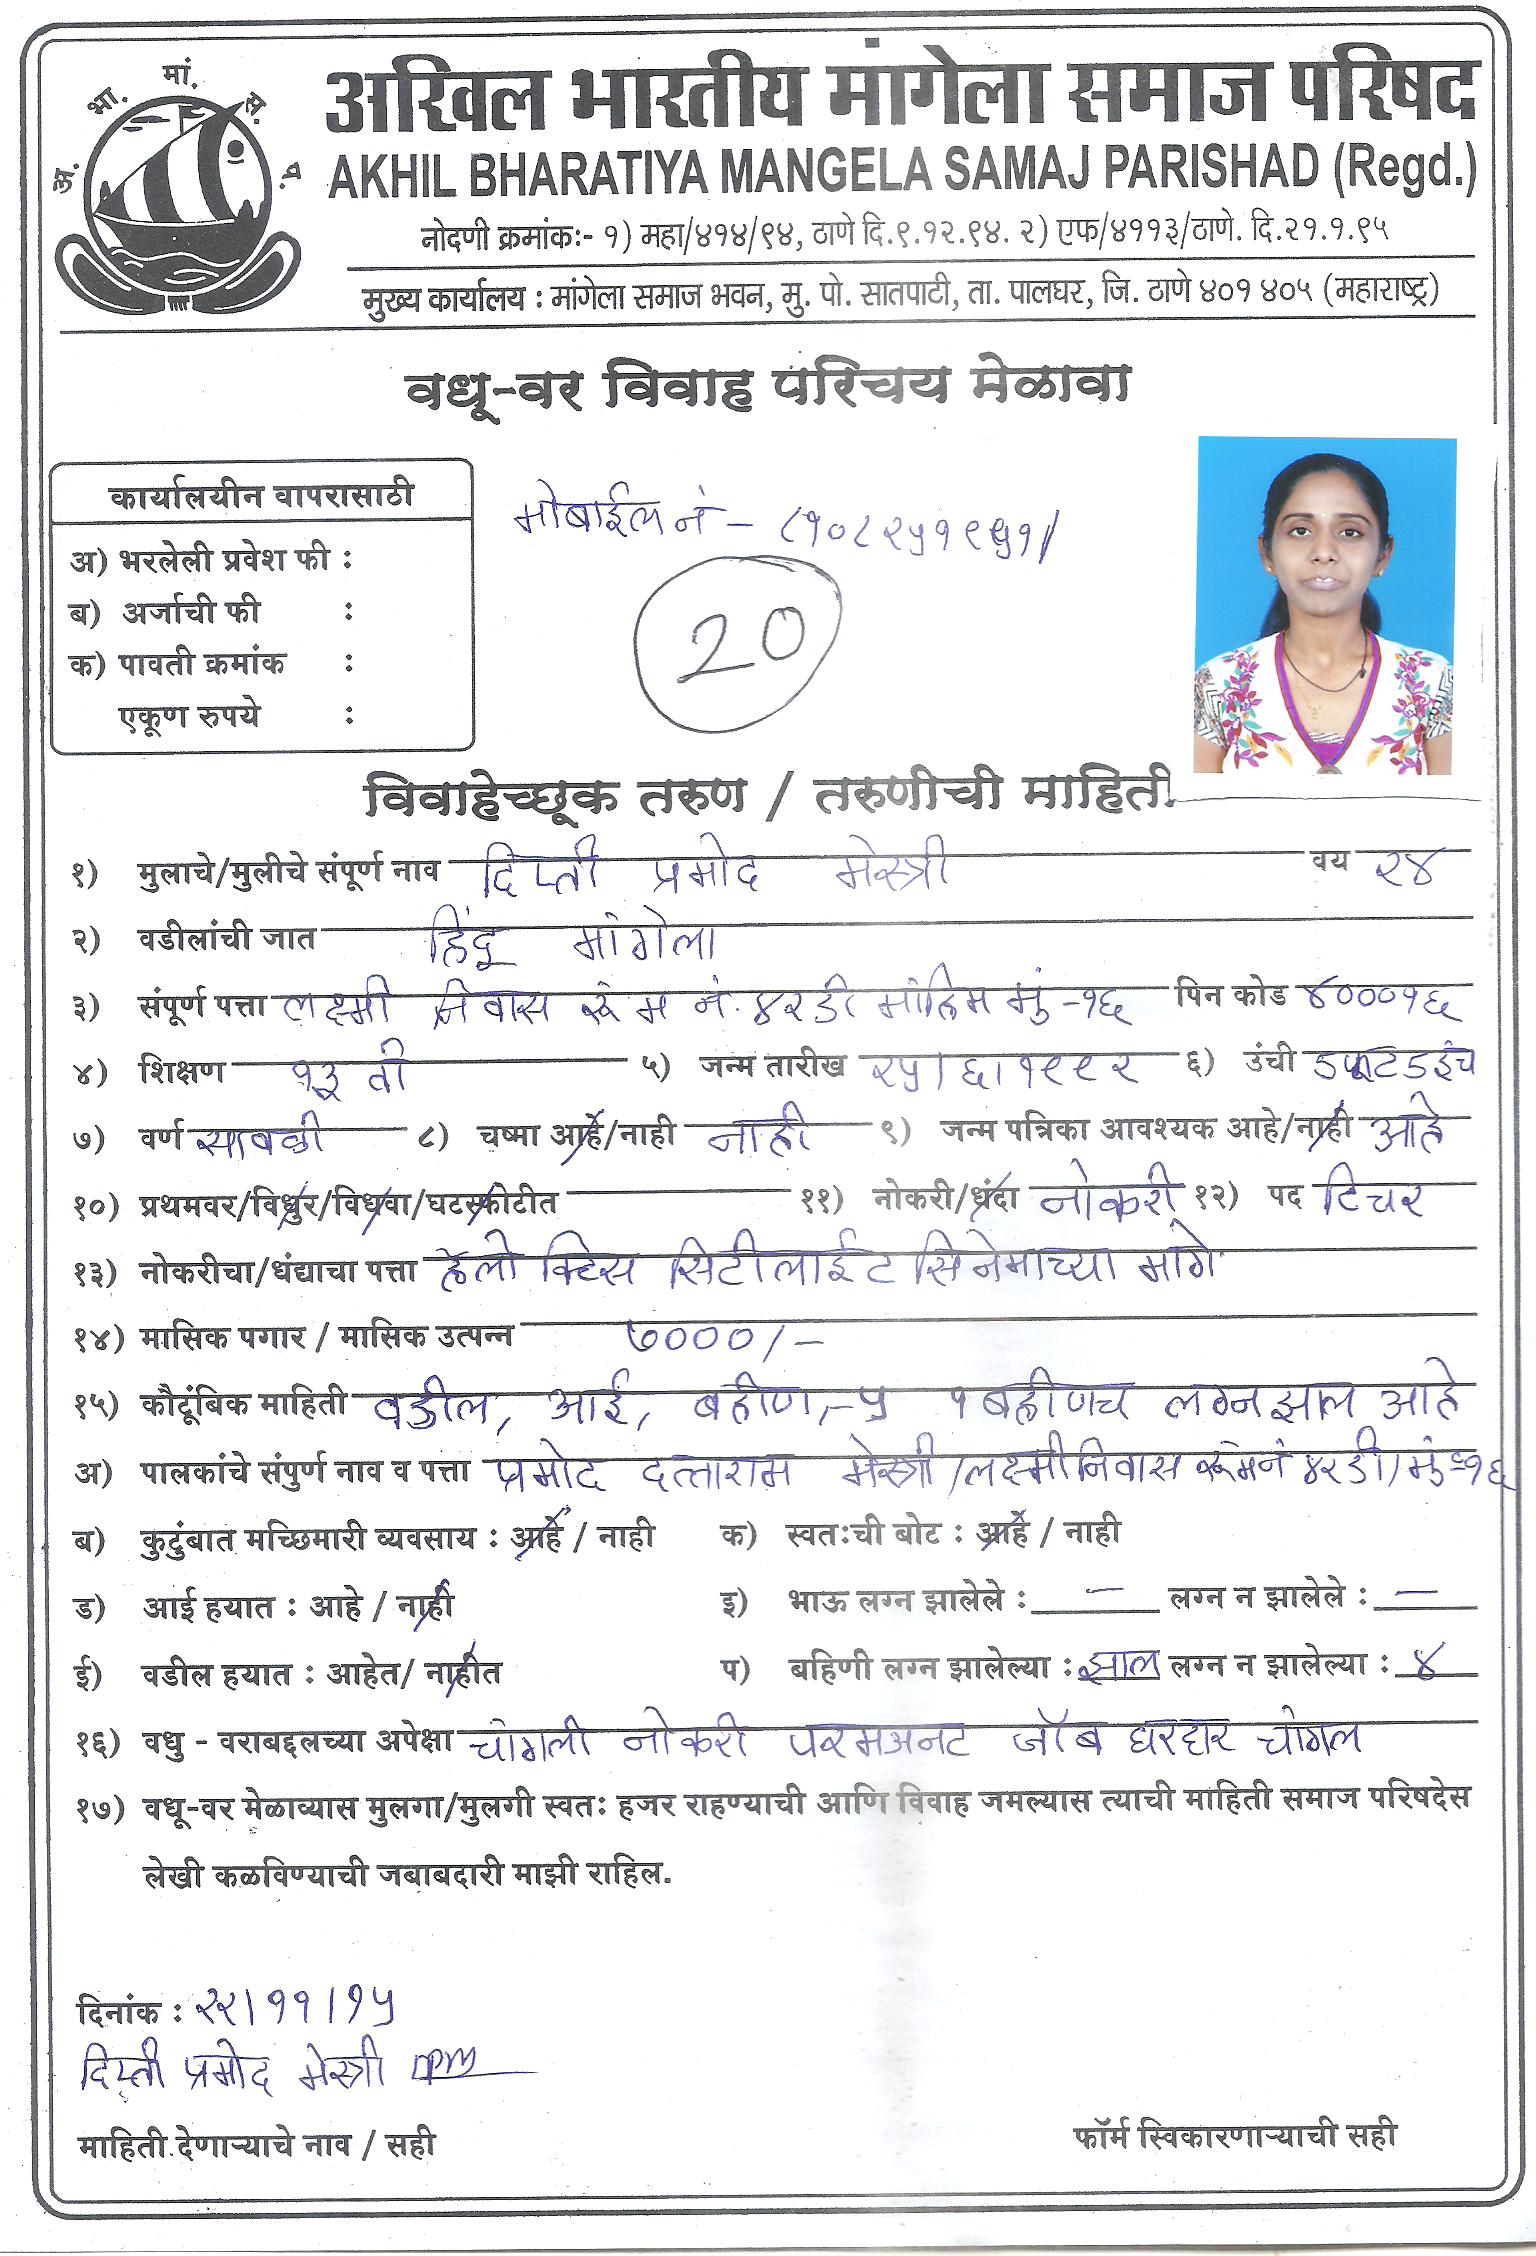 अ. भा. मां. स. प.
अखिल भारतीय मांगेला समाज परिषद
AKHIL BHARATIYA MANGELA SAMAJ PARISHAD (Regd.)
नोदणी क्रमांक:- १) महा/४१४/९४, ठाणे दि.९.१२.९४. २) एफ/४११३/ठाणे. दि.२१.१.९५
मुख्य कार्यालय : मांगेला समाज भवन, मु. पो. सातपाटी, ता. पालघर, जि. ठाणे ४०१ ४०५ (महाराष्ट्र)
वधू-वर विवाह परिचय मेळावा
कार्यालयीन वापरासाठी
अ) भरलेली प्रवेश फी :
ब) अर्जाची फी :
क) पावती क्रमांक :
एकूण रुपये :
मोबाईल नं -
20
विवाहेच्छूक तरुण / तरुणीची माहिती
१) मुलाचे/मुलीचे संपूर्ण नाव दिप्ती प्रमोद मेस्त्री वय २४
२) वडीलांची जात हिंदू मांगेला
३) संपूर्ण पत्ता लक्ष्मी निवास रूम नं. ४२डी माहिम मुं -१६ पिन कोड ४०००१६
४) शिक्षण १३ वी ५) जन्म तारीख २५/६/१९९२ ६) उंची ५फूट५इंच
७) वर्ण सावळी ८) चष्मा आहे/नाही नाही ९) जन्म पत्रिका आवश्यक आहे/नाही आहे
१०) प्रथमवर/विधुर/विधवा/घटस्फोटीत ११) नोकरी/धंदा नोकरी १२) पद टिचर
१३) नोकरीचा/धंद्याचा पत्ता हॅलो किड्स सिटीलाईट सिनेमाच्या मागे
१४) मासिक पगार / मासिक उत्पन्न ७०००/-
१५) कौटूंबिक माहिती वडील, आई, बहीण,-५ १ बहीणच लग्न झाल आहे
अ) पालकांचे संपुर्ण नाव व पत्ता प्रमोद दत्ताराम मेस्त्री/लक्ष्मी निवास रूम नं ४२डी/मुं-१६
ब) कुटुंबात मच्छिमारी व्यवसाय : आहे / नाही क) स्वतःची बोट : आहे / नाही
ड) आई हयात : आहे / नाही इ) भाऊ लग्न झालेले : — लग्न न झालेले : —
ई) वडील हयात : आहेत/ नाहीत प) बहिणी लग्न झालेल्या : झाल लग्न न झालेल्या : ४
१६) वधु - वराबद्दलच्या अपेक्षा चांगली नोकरी परमअनट जॉब घरदार चांगल
१७) वधू-वर मेळाव्यास मुलगा/मुलगी स्वतः हजर राहण्याची आणि विवाह जमल्यास त्याची माहिती समाज परिषदेस
लेखी कळविण्याची जबाबदारी माझी राहिल.
दिनांक : २२/११/१५
दिप्ती प्रमोद मेस्त्री
माहिती देणाऱ्याचे नाव / सही
फॉर्म स्विकारणाऱ्याची सही